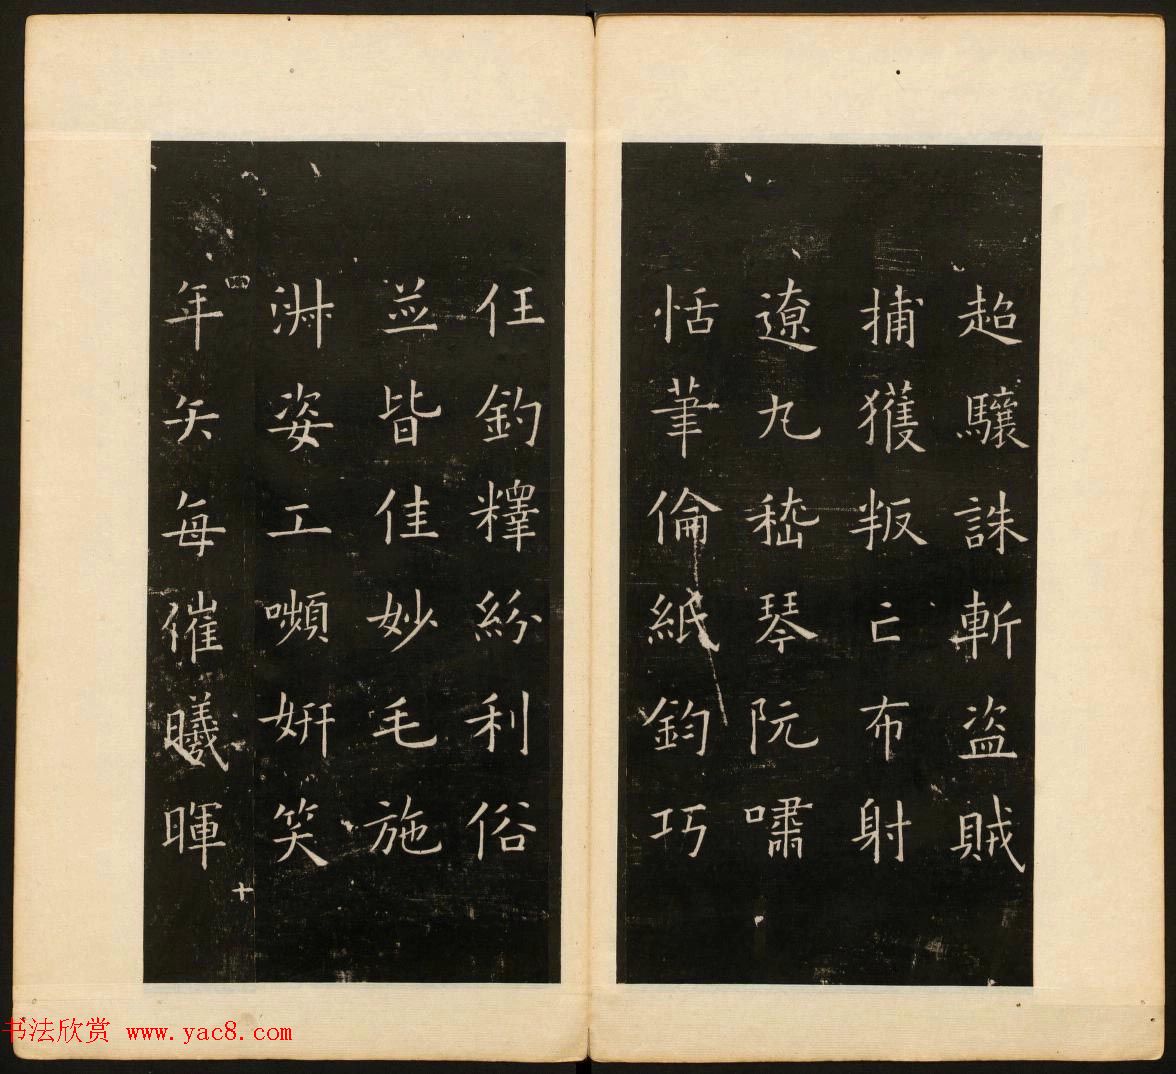 超驤誅斬盗賊
捕獲叛亡布射
遼丸嵇琴阮嘯
恬筆倫紙鈞巧
任釣釋紛利俗
並皆佳妙毛施
淑姿工嚬妍笑
四
十
年矢每催曦暉
书法欣赏 www.yac8.com